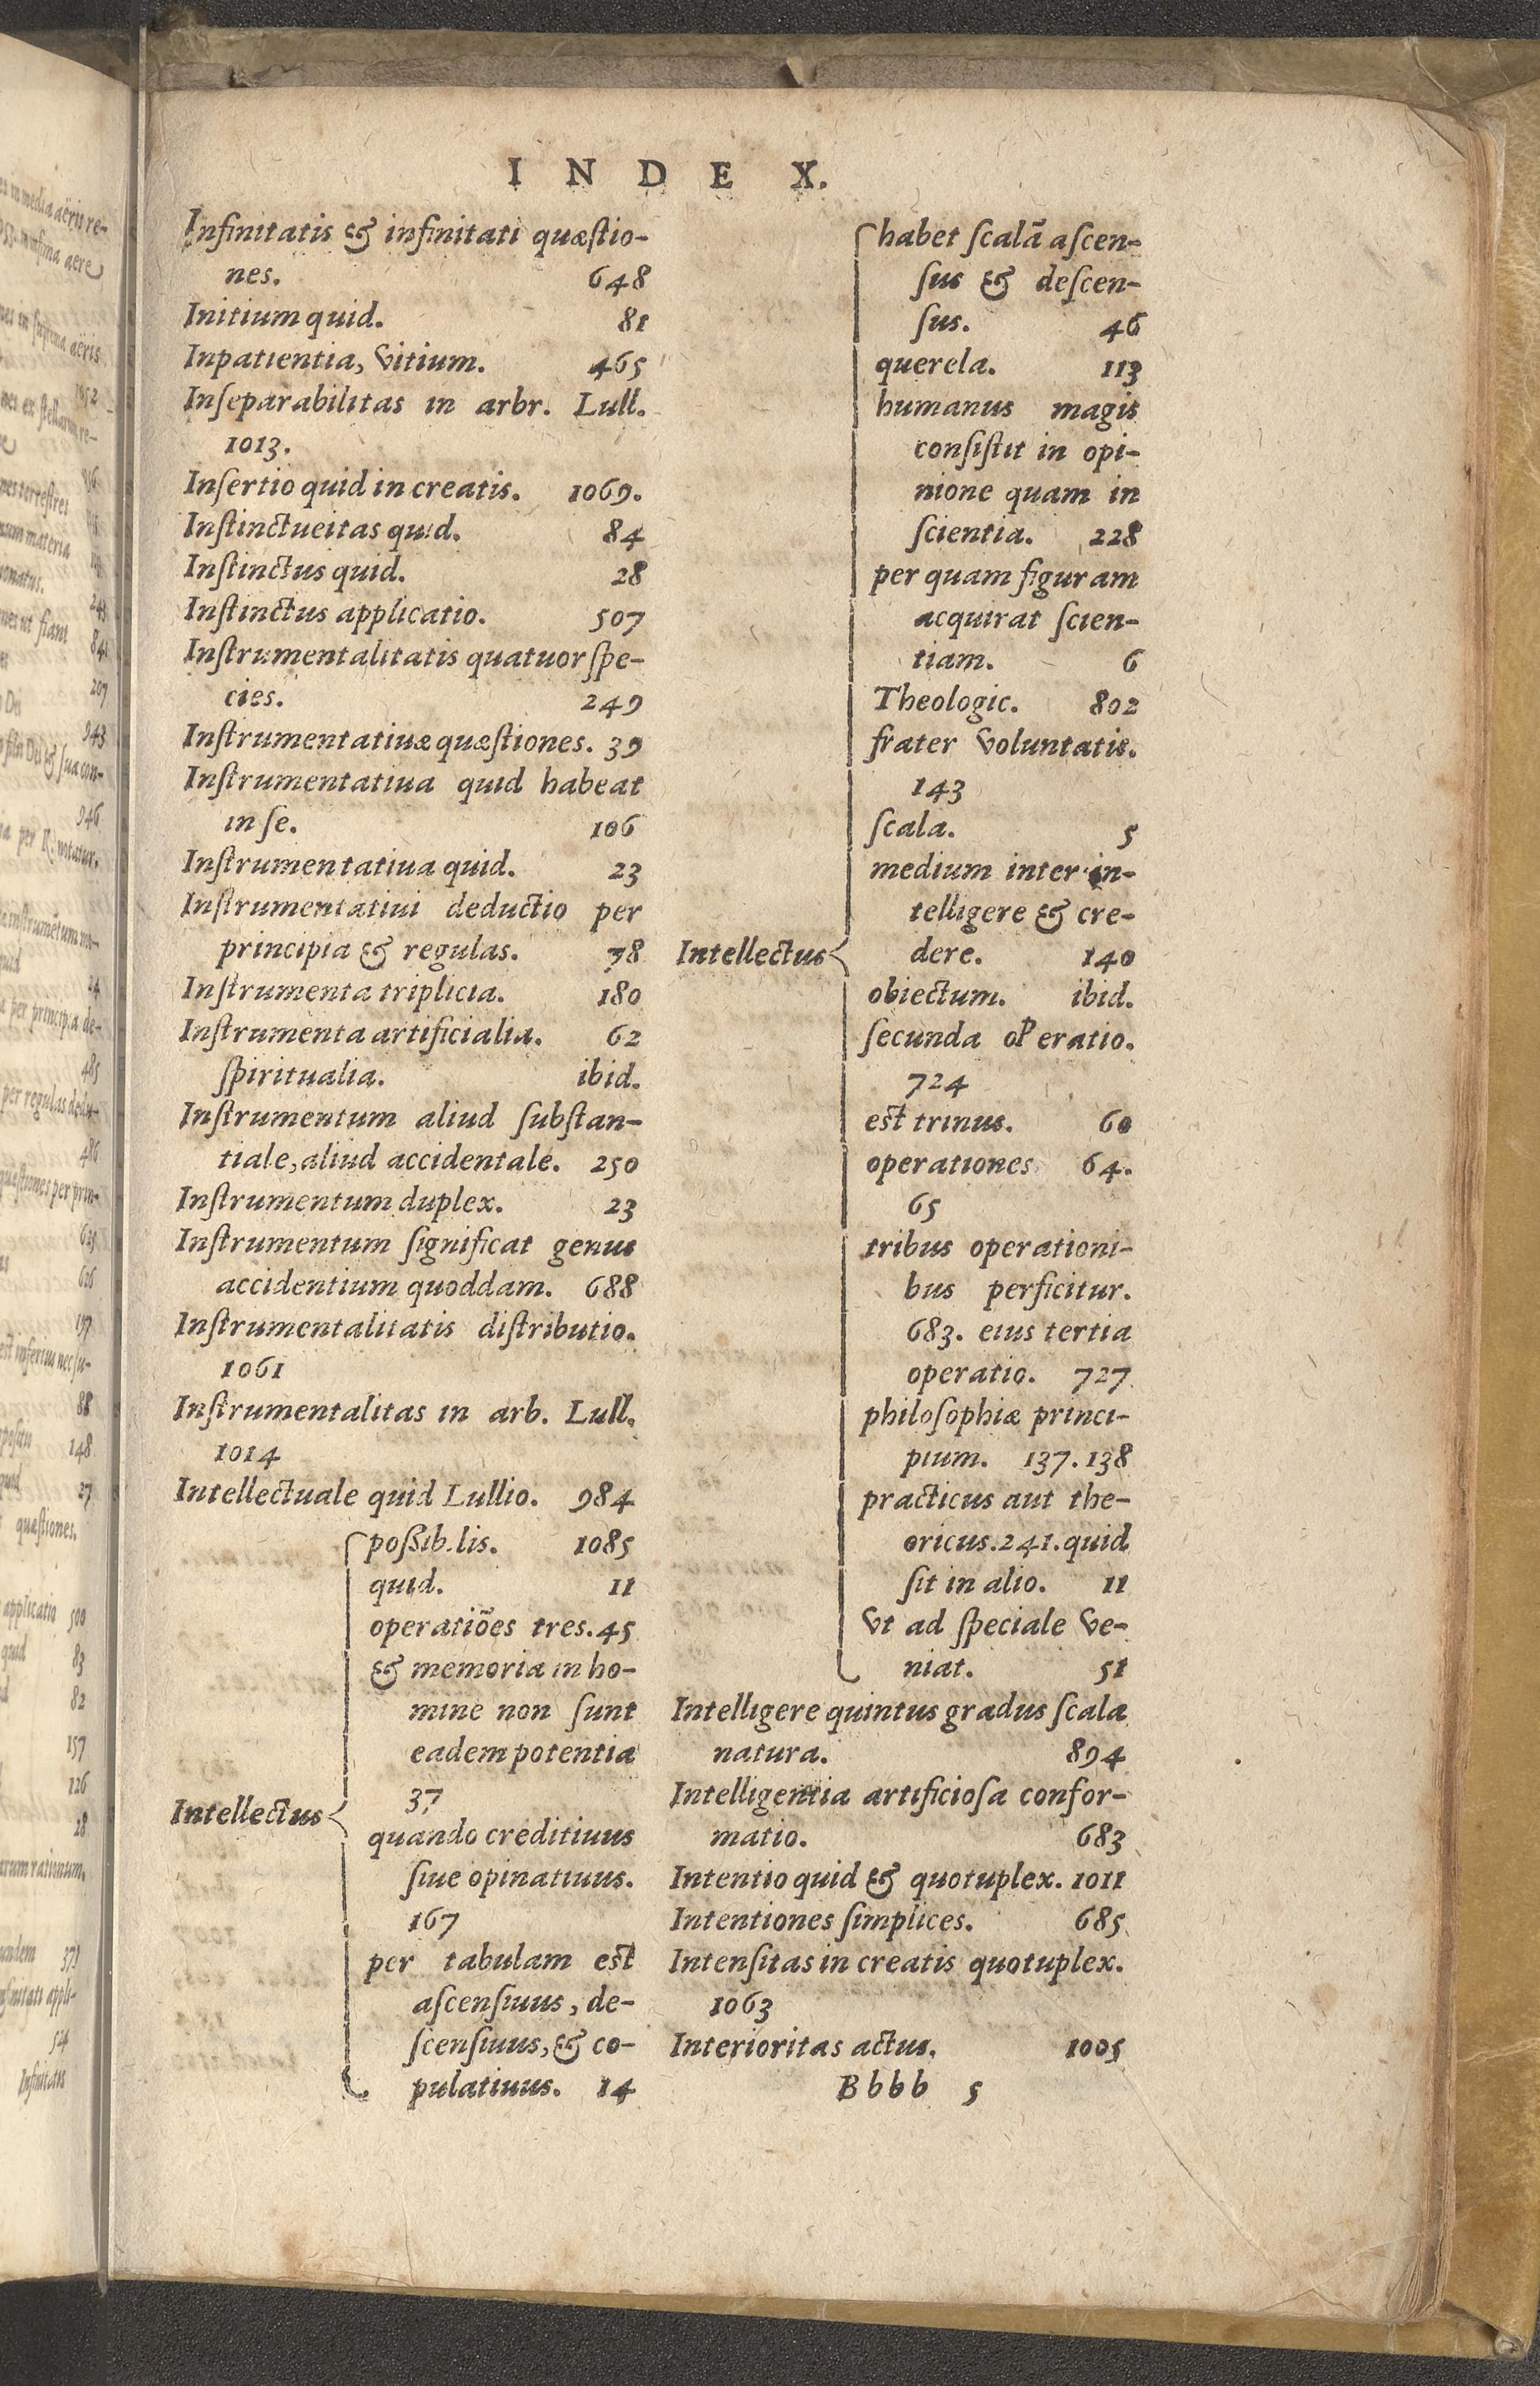 INDEX.
Infinitatis & infinitati quæſtio-
nes. 648
Initium quid. 81
Inpatientia, vitium. 465
Inſeparabilitas in arbr. Lull.
1013.
Inſertio quid in creatis. 1069.
Inſtinctueitas quid. 84
Inſtinctus quid. 28
Inſtinctus applicatio. 507
Inſtrumentalitatis quatuor ſpe-
cies. 249
Inſtrumentatiuæ quæſtiones. 39
Inſtrumentatiua quid habeat
in ſe. 106
Inſtrumentatiua quid. 23
Inſtrumentatiui deductio per
principia & regulas. 78
Inſtrumenta triplicia. 180
Inſtrumenta artificialia. 62
ſpiritualia. ibid.
Inſtrumentum aliud ſubſtan-
tiale, aliud accidentale. 250
Inſtrumentum duplex. 23
Inſtrumentum ſignificat genus
accidentium quoddam. 688
Inſtrumentalitatis diſtributio.
1061
Inſtrumentalitas in arb. Lull.
1014
Intellectuale quid Lullio. 984
poßib.lis. 1085
quid. 11
operatiões tres. 45
& memoria in ho-
mine non ſunt
eadem potentia
37
Intellectus
quando creditiuus
ſiue opinatiuus.
167
per tabulam est
aſcenſiuus, de-
ſcenſiuus, & co-
pulatiuus. 14
habet ſcalã aſcen-
ſus & deſcen-
ſus. 46
querela. 113
humanus magis
conſiſtit in opi-
nione quam in
ſcientia. 228
per quam figuram
acquirat ſcien-
tiam. 6
Theologic. 802
frater voluntatis.
143
ſcala. 5
medium inter in-
telligere & cre-
Intellectus dere. 140
obiectum. ibid.
ſecunda oPeratio.
724
est trinus. 60
operationes 64.
65
tribus operationi-
bus perficitur.
683. eius tertia
operatio. 727
philoſophiæ princi-
pium. 137. 138
practicus aut the-
oricus. 241. quid
ſit in alio. 11
vt ad ſpeciale ve-
niat. 51
Intelligere quintus gradus ſcala
natura. 894
Intelligentia artificioſa confor-
matio. 683
Intentio quid & quotuplex. 1011
Intentiones ſimplices. 685
Intenſitas in creatis quotuplex.
1063
Interioritas actus. 1005
Bbbb 5